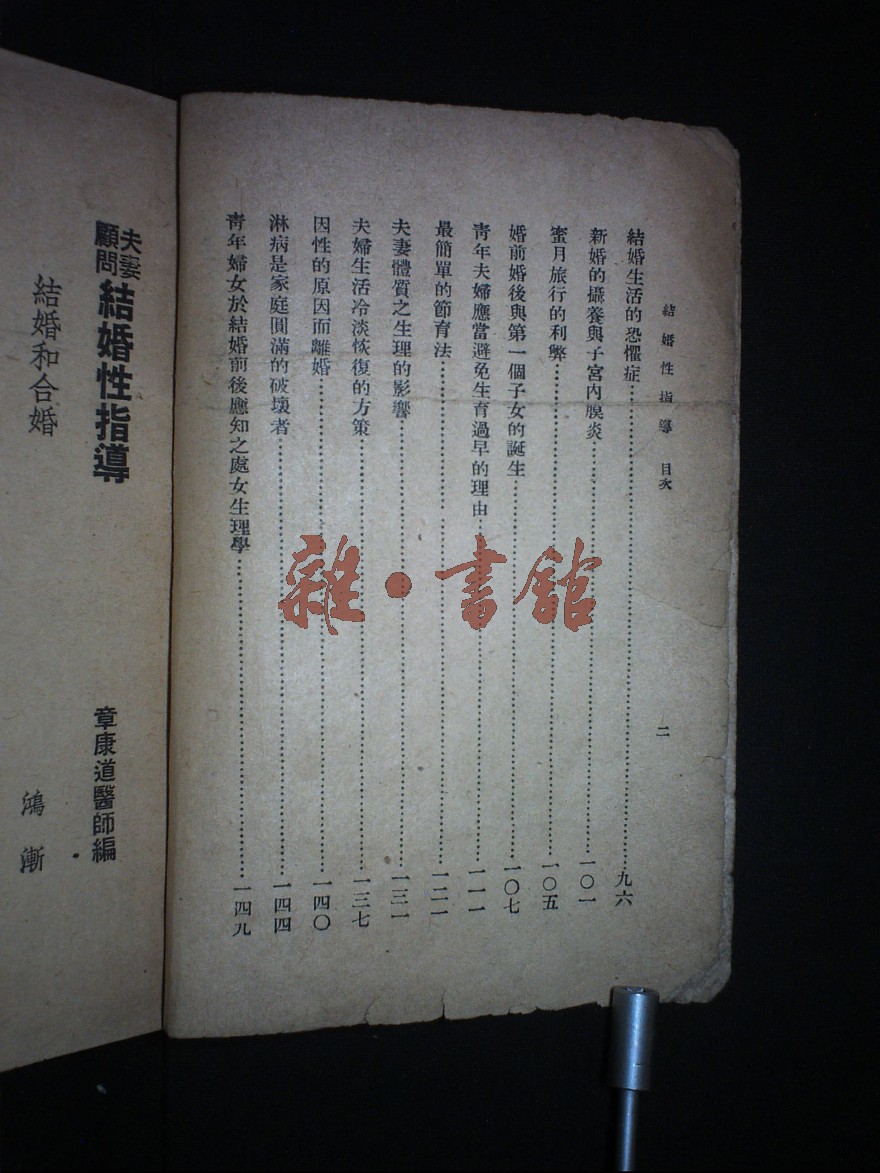 結婚性指導 目次 二
結婚生活的恐懼症 九六
新婚的攝養與子宮內膜炎 一〇一
蜜月旅行的利弊 一〇五
婚前婚後與第一個子女的誕生 一〇七
靑年夫婦應當避免生育過早的理由 一一一
最簡單的節育法 一二一
夫妻體質之生理的影響 一三一
夫婦生活冷淡恢復的方策 一三七
因性的原因而離婚 一四〇
淋病是家庭圓滿的破壞者 一四四
靑年婦女於結婚前後應知之處女生理學 一四九
夫妻顧問 結婚性指導 章康道醫師編
結婚和合婚
鴻漸
雜·書館